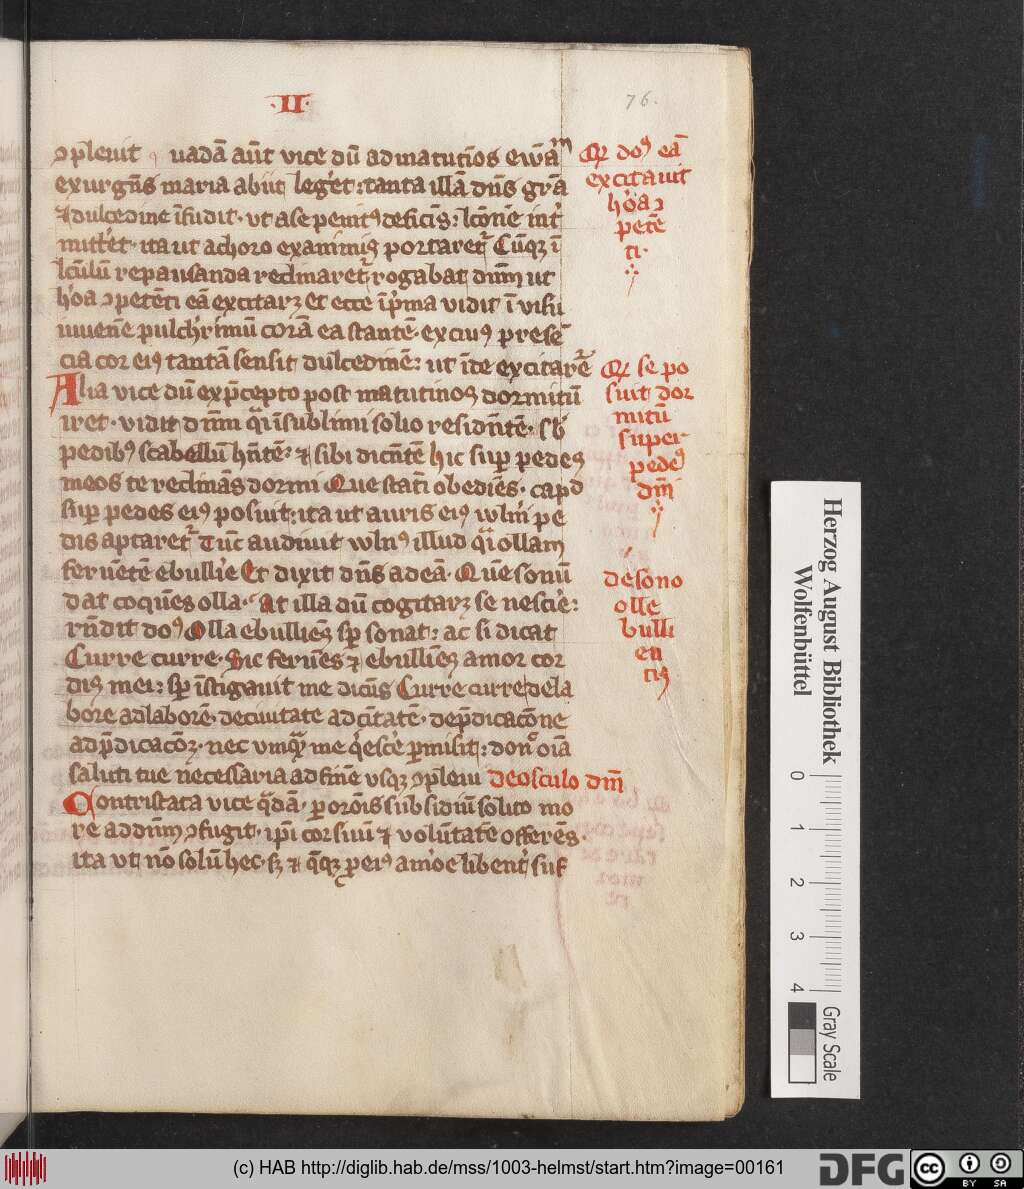 ·II·
76.
ꝯpleuit quadā aūt vice dū ad matutīos ewāᵐ
exurgēs maria abiit leget: tanta illā dn̄s grā
⁊ dulcedine īfudit· vt a se penitꝰ deficiēs: lcōnē int̓
mitt̓et· ita ut a choro examinis portaret᷑ Cūqꝫ ī
lc̄ulū repausanda reclinaret᷑ rogabat dn̄m ut
h̓oa ꝯpetēti eā excitarꝫ Et ecce ī p̓ma vidit ī visu
iuuenē pulch̓rimū corā ea stantē· ex cuiꝰ presē
cia cor eiꝰ tantā sensit dulcedinē: ut īde excitarē᷑
Alia vice dū ex p̄cepto post matutinos dormitū
iret· vidit dn̄m q̄ in sublimi solio residn̄tē· sb̓
pedibꝰ scabellū hn̄tē: ⁊ sibi dicn̄tē hic suꝑ pedes
meos te reclinās dormi Que stati obediēs· capᵈ
suꝑ pedes eiꝰ posuit: ita ut auris eiꝰ wln̓i pe
dis aptaret᷑ Tūc audiuit wlnꝰ illud q̄i ollam
feruētē ebullíe Et dixit dn̄s ad eā· Quē sonū
dat coquēs olla· At illa dū cogitarꝫ se nescíe:
rn̄dit doꝰ Olla ebulliēs sꝑ sonat: ac si dicat
Curre curre· Sic feruēs ⁊ ebulliēs amor cor
dis mei: sꝑ īstigauit me dicēs Curre curre de la
bore ad laborē· de ciuitate ad ciūtatē· de p̄dicacōne
ad p̄dicacōꝫ· nec vmqᷓ me q̓esc̓e ꝑmisit: donͦ oīa
saluti tue necessaria ad finē vsqꝫ ꝯpleui de osculo dn̄i
Contristata vice q̄dā· ꝑ orōis subsidiū solito mo
re ad dn̄m ꝯfugit· ip̄i cor suū ⁊ volūtatē offerēs·
ita vt nō solū hec· sꝫ ⁊ q̄qꝫ ꝑ eiꝰ amōe libent̓ suf
Qr doꝰ eā
excitauit
h̓oa ꝯ
petē
ti·
Qr se po
suit dor
mitū
super
pedes
dn̄i
de sono
olle
bulli
en
tis
Herzog August Bibliothek
Wolfenbüttel
0 1 2 3 4
Gray Scale
(c) HAB http://diglib.hab.de/mss/1003-helmst/start.htm?image=00161
DFG
cc
BY SA